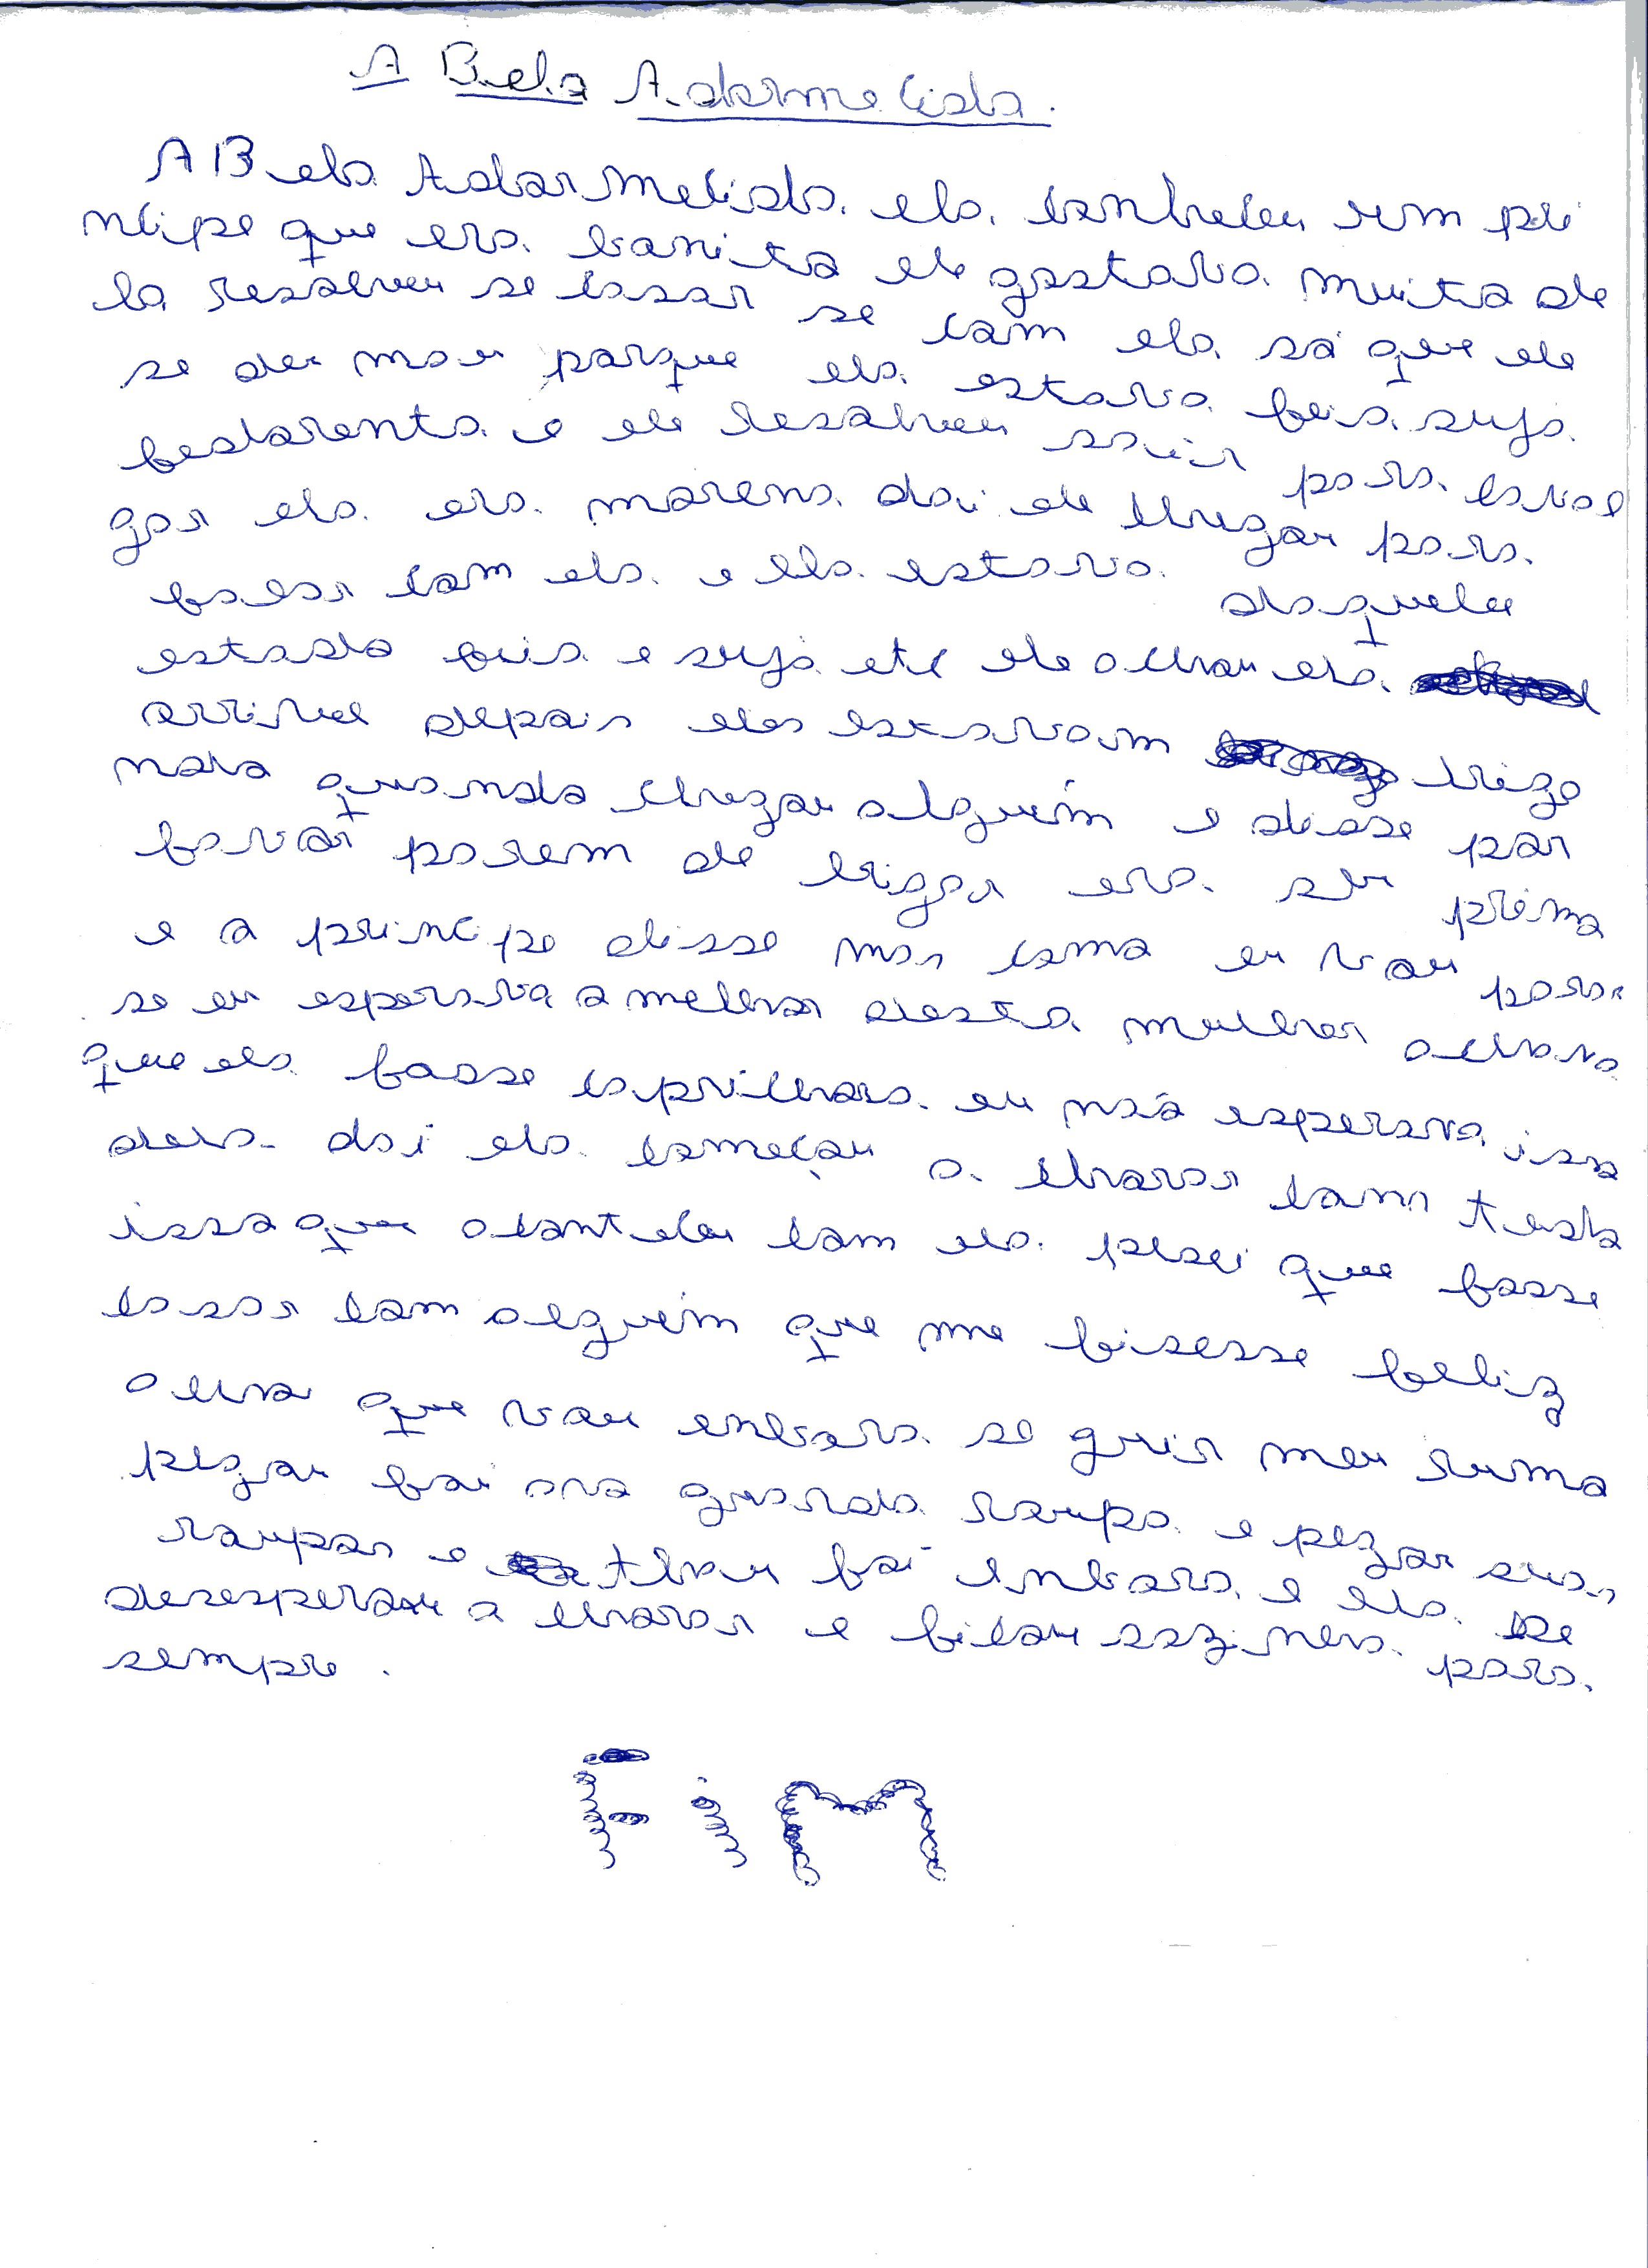 A Bela Adormecida.
A Bela Adormecida ela conheceu um pri
ncipe que era bonito ele gostava muito de
la resouveu se casar se com ela só que ele
se deu mou porque ela estava feia suja
fedorenta e ele resouveu sair para caval
gar ela era morena daí ele chegou para
falar com ela e ela estava daquele
estado feia e suja etc ele achou ela
arrivel depois eles estavam brigo
nado quando chegou alguém e disse por
favor parem de brigar era seu primo
e o principe disse mas como eu vou para
se eu esperava o melhor desta mulher achava
que ela fosse caprichada eu não esperava isso
dela daí ela começou a chorar com tudo
isso que aconteceu com ela pesei que fosse
casar com alguém que me fisesse feliz
acho que vou embora se guir meu rumo
pegou foi no guarda roupa e pegou suas
roupas e tchau foi embora e ela se
desesperou a chorar e ficou sozinha para
sempre.
FiM